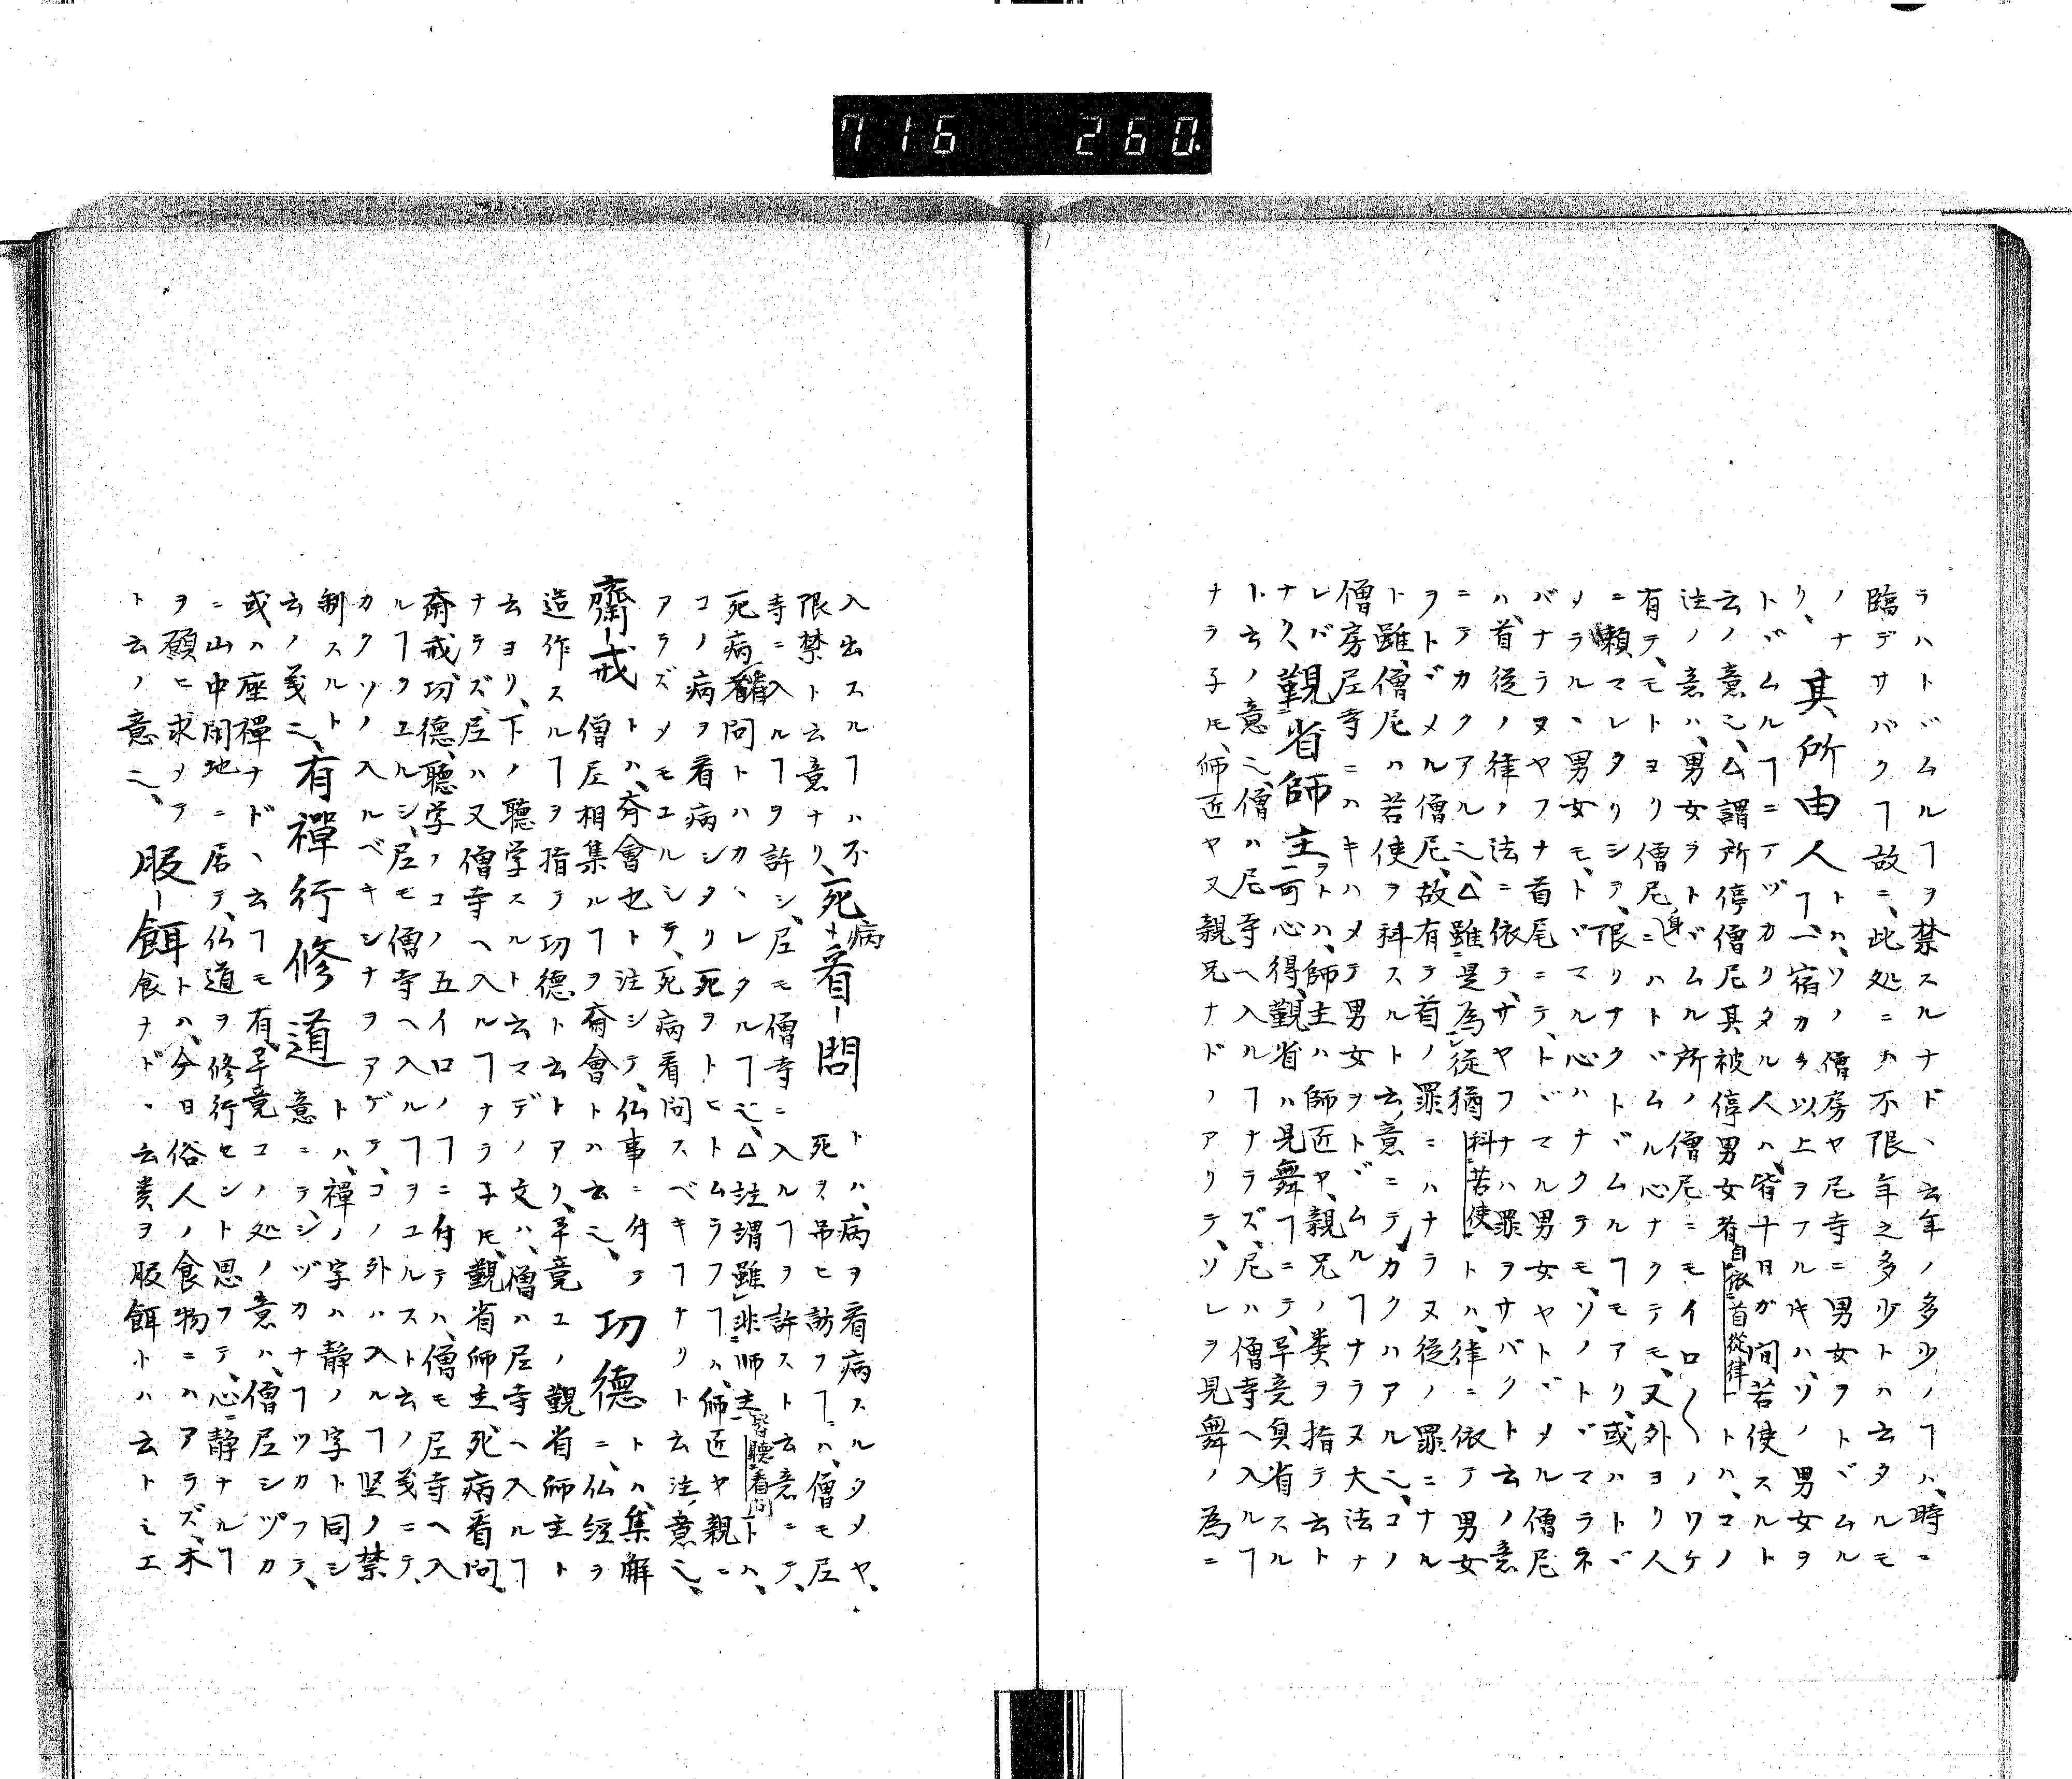 716 260
ラハトヾムルヿヲ禁スルナド、云年ノ多少ノヿハ、時ニ
臨デサバクヿ故ニ、此処ニハ不限年之多少トハ云タルモ
ノナリ、其所由人トハ、ソノ僧房ヤ尼寺ニ男女ヲトヾムル
ヿ、一宿カラ以上ヲフルキハ、ソノ男女ヲ
トヾムルヿニアヅカリタル人ハ、皆十日ガ間苦使スルト
云ノ意ニ、△謂所停僧尼其被停男女者自依首從律トハ、コノ
注ノ意ハ、男女ヲトヾムル所ノ僧尼ニモイロ〱ノワケ
有テ、モトヨリ僧尼ノ身ニハトヾムル心ナクテモ、又外ヨリ人
ニ頼マレタリシテ、限リナクトヾムルヿモアリ、或ハトヾ
メラルヽ男女モ、トヾマル心ハナクテモ、ソノトヾマラネ
バナラヌヤフナ首尾ニテ、トヾマル男女ヤトヾメル僧尼
ハ、首從ノ律ノ法ニ依テ、サヤフナハ罪ヲサバクト云ノ意
ニテカクアルニ、△雖是為從猶科苦使トハ、律ニ依テ男女
ヲトヾメル僧尼、故有テ首ノ罪ニハナラヌ從ノ罪ニナル
ト雖、僧尼ハ苦使ヲ科スルト云意ニテ、カクハアルニ、コノ
僧房尼寺ニハキハメテ男女ヲトヾムルヿナラヌ大法ナ
レバ、覲省師主ヲトハ、師主ハ師匠ヤ、親兄ノ類ヲ指テ云ト
ナク、可心得、覲省ハ見舞ヿニテ、畢竟奠省スル
ト云ノ意ニ、僧ハ尼寺ヘ入ルヿナラズ、尼ハ僧寺ヘ入ルヿ
ナラ子モ、師匠ヤ又親兄ナドノアリテ、ソレヲ見舞ノ為ニ
入出スルヿハ不死病看問トハ、病ヲ看病スルタメヤ、
限禁ト云意ナリ、死ヲ吊ヒ訪フヿニハ、僧モ尼
寺ニ入ルヿヲ許シ、尼モ僧寺ニ入ルヿヲ許スト云意ニテ、
死病看問トハカヽレタルヿニ、△注謂雖非師主皆聽看問トハ、
コノ病ヲ看病シタリ死ヲトヒトムラフヿハ、師匠ヤ親ニハ
アラズメモユルシテ、死病看問スベキヿナリト云法ノ意ニ、
齋戒トハ、斎會也ト注シテ、仏事ニ付テ功德トハ、集解
僧尼相集ルヿヲ斎會トハ云ニ、ニ、仏経ヲ
造作スルヿヲ指テ功德ト云トアリ、畢竟ユノ觀省師主ト
云ヨリ、下ノ聽学スルト云マデノ文ハ、僧ハ尼寺ヘ入ルヿ
ナラズ、尼ハ又僧寺ヘ入ルヿナラ子モ、覲省師主死病看問、
斎戒功德、聽学ノコノ五イロノヿニ付テハ、僧モ尼寺ヘ入
ルヿクユルシ、尼モ僧寺ヘ入ルヿヲユルスト云ノ義ニテ、
カクソノ入ルベキシナヲアゲテ、コノ外ハ入ルヿ堅ノ禁
制スルト、有禪行修道トハ、禪ノ字ハ静ノ字ト同シ
云ノ義ニ、意ニテ、シヅカナヿツカフテ、
或ハ座禪ナド、云ヿモ有、畢竟コノ処ノ意ハ、僧尼シヅカ
ニ山中閑地ニ居テ、仏道ヲ修行セント思フテ、心ニ静ナルヿ
ヲ願ヒ求ヲテ服餌トハ、今日俗人ノ食物ニハアラズ、木
ト云ノ意ニ、食ナド、云美ヲ服餌トハ云トミエ